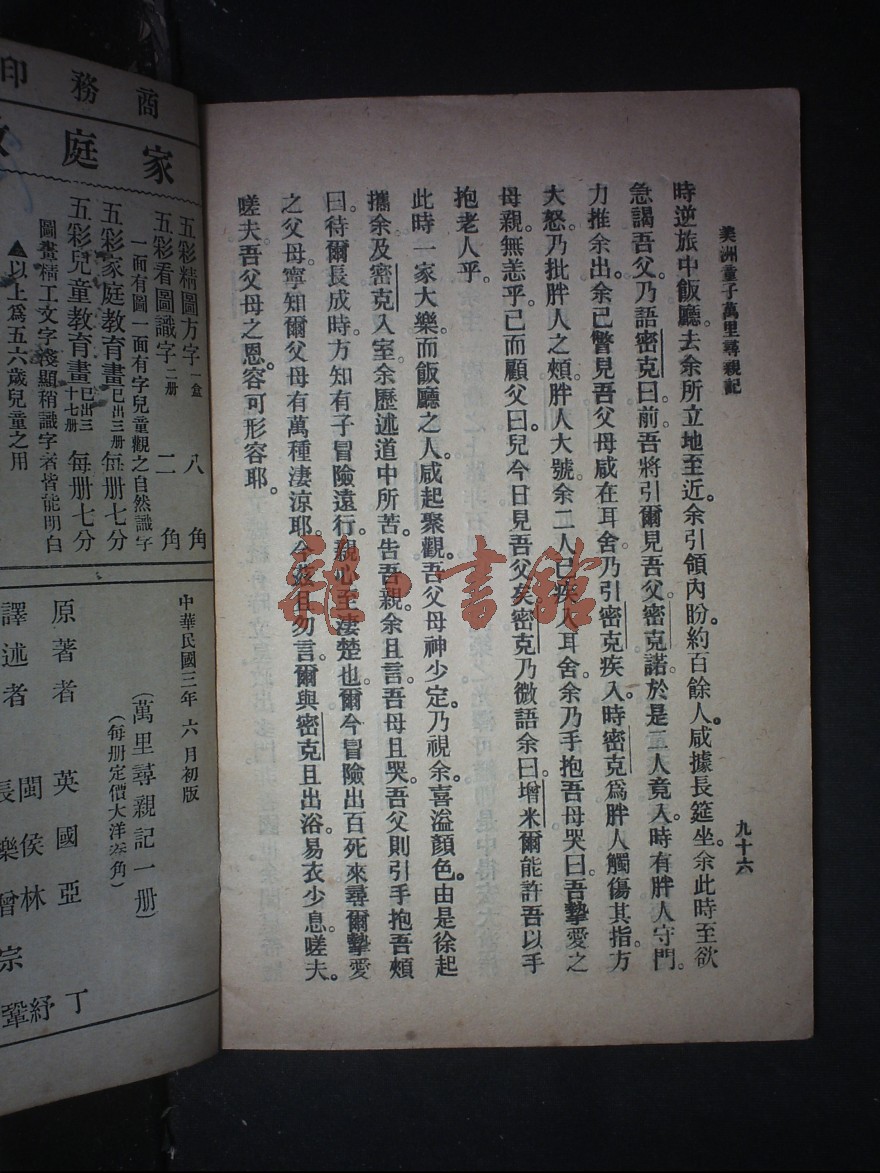 美洲童子萬里尋親記
時逆旅中飯廳。去余所立地至近。余引領內盼。約百餘人。咸據長筵坐。余此時至欲
急謁吾父。乃語密克曰。前。吾將引爾見吾父。密克諾。於是二人竟入。時有胖人守門。
力推余出。余已瞥見吾父母咸在耳舍。乃引密克疾入。時密克爲胖人觸傷其指。方
大怒。乃批胖人之頰。胖人大號。余二人已疾入耳舍。余乃手抱吾母哭曰。吾摯愛之
母親。無恙乎。已而顧父曰。兒今日見吾父矣。密克乃微語余曰。增米爾能許吾以手
抱老人乎。
此時一家大樂。而飯廳之人。咸起聚觀。吾父母神少定。乃視余。喜溢顏色。由是徐起
攜余及密克入室。余歷述道中所苦。告吾親。余且言。吾母且哭。吾父則引手抱吾頰
曰。待爾長成時。方知有子冒險遠行。親心至淒楚也。爾今冒險出百死來尋爾摯愛
之父母。寧知爾父母有萬種淒涼耶。今茲且勿言。爾與密克且出浴。易衣少息。嗟夫。
嗟夫。吾父母之恩容可形容耶。
九十六
商務印
家庭教
五彩精圖方字 一盒 八角
五彩看圖識字 二册 二角
一面有圖一面有字兒童觀之自然識字
五彩家庭教育畫 已出三册 每册七分
五彩兒童教育畫 已出三十七册 每册七分
圖畫精工文字淺顯稍識字者皆能明白
▲以上爲五六歲兒童之用
中華民國三年六月初版
(萬里尋親記一册)
(每册定價大洋叁角)
原著者 英國亞丁
譯述者 閩侯林紓
長樂曾宗鞏
書館